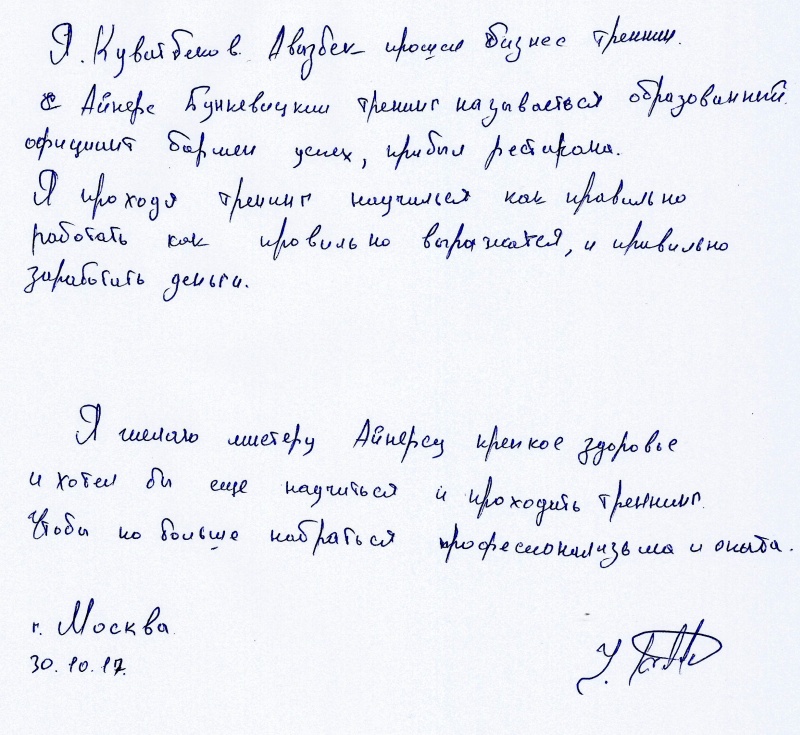 Я. Куватбеков Авазбек прошел бизнес тренинг.
с Айнерс Бункевицкий тренинг называеться образованний
официант бармен успех, прибыл ресторона.
Я проходя тренинг научился как правильно
работать как провильно выражатся, и правильно
заработать деньги.
Я желаю мистеру Айнерсу крепкое здоровье
и хотел би еще научиться и проходить треннинг.
Чтоби по больше набраться професионализьма и опыта.
г. Москва
30.10.17.